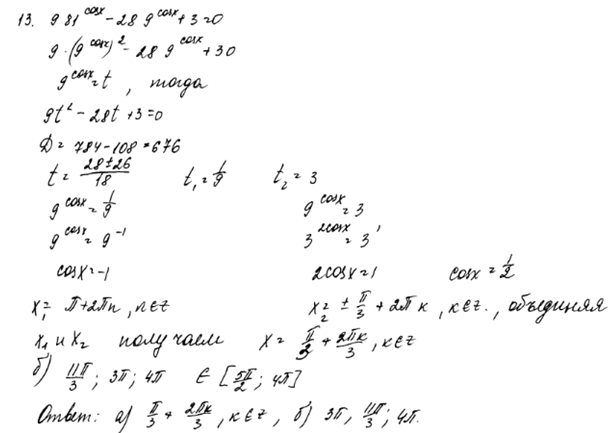 13. 9 81^cosx - 28 9^cosx + 3 = 0
9 · (9^cosx)² - 28 9^cosx + 30
9^cosx = t , тогда
9t² - 28t + 3 = 0
D = 784 - 108 = 676
t = (28 ± 26)/18 t₁ = 1/9 t₂ = 3
9^cosx = 1/9 9^cosx = 3
9^cosx = 9^-1 3^2cosx = 3^1
cosx = -1 2cosx = 1 cosx = 1/2
x₁ = π + 2πn, n ∈ Z x₂ = ± π/3 + 2πk, k ∈ Z. , объединяя
x₁ и x₂ получаем x = π/3 + 2πk/3, k ∈ Z
б) 11π/3; 3π; 4π ∈ [5π/2; 4π]
Ответ: а) π/3 + 2πk/3, k ∈ Z, б) 3π, 11π/3; 4π.